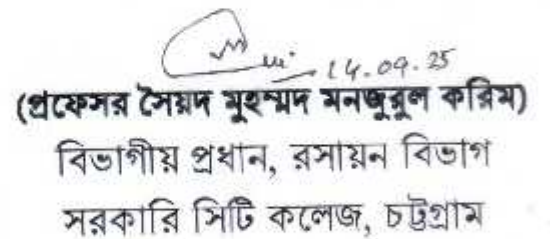 14.09.25
(প্রফেসর সৈয়দ মুহম্মদ মনজুরুল করিম)
বিভাগীয় প্রধান, রসায়ন বিভাগ
সরকারি সিটি কলেজ, চট্টগ্রাম